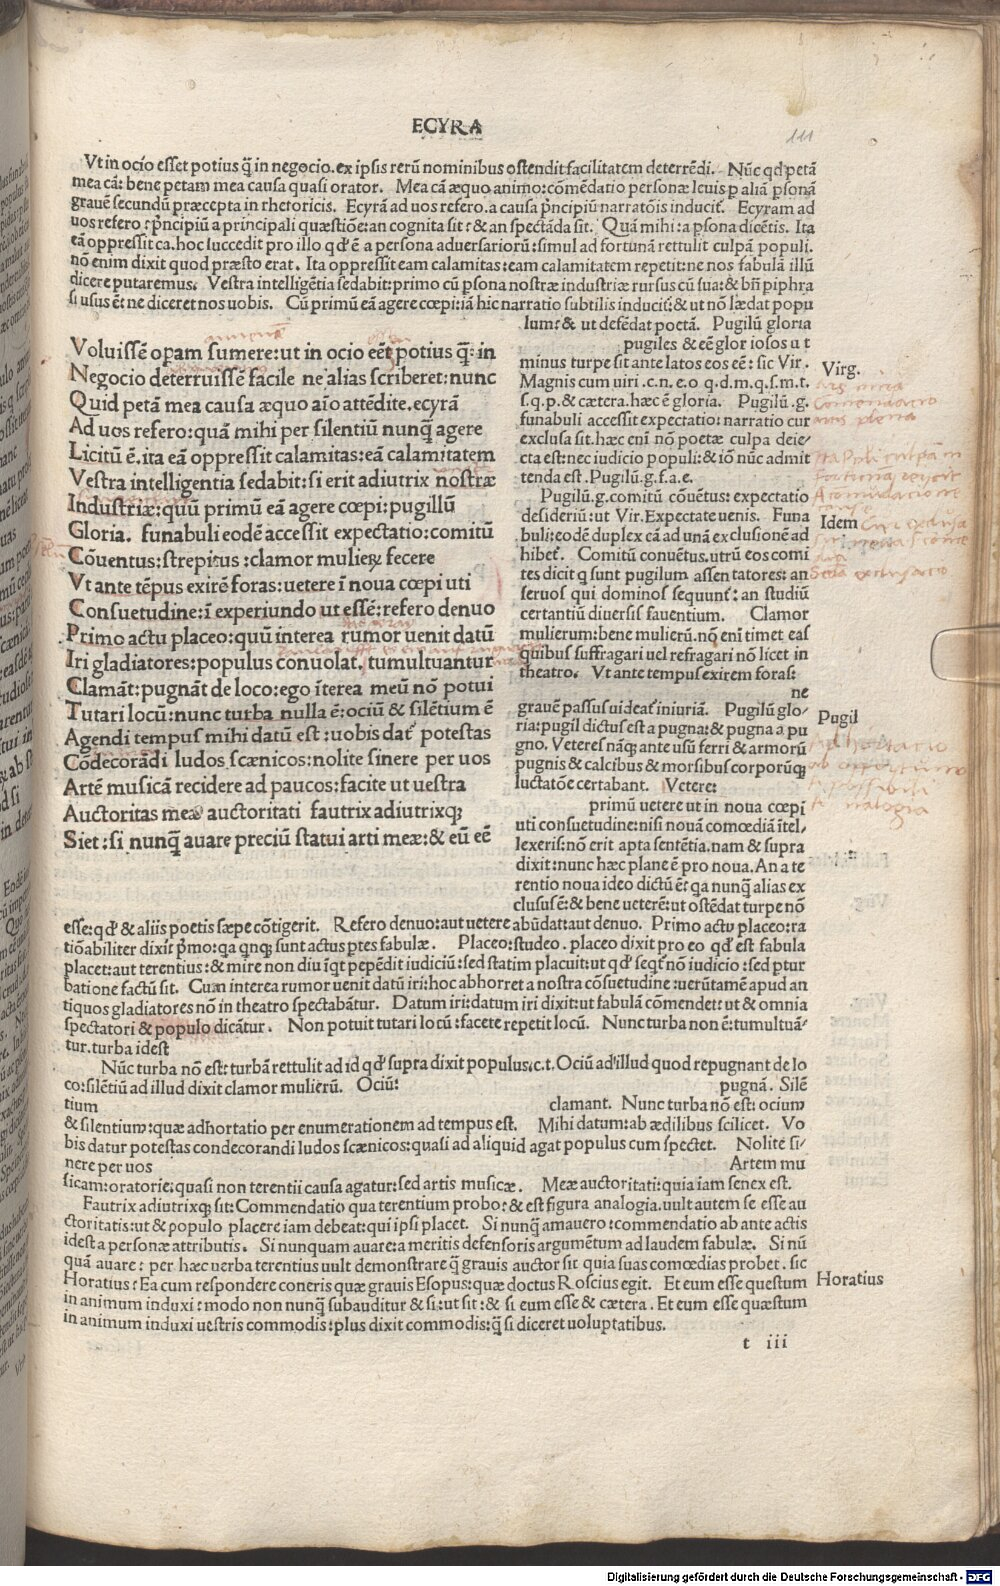 ECYRA
111
Vt in ocio esset potius q̃ in negocio.ex ipsis rerū nominibus ostendit facilitatem deterrēdi. Nūc qd petā
mea cā: bene petam mea causa quasi orator. Mea cā æquo animo:cōmēdatio personæ leuis p aliā psonā
grauē secundū præcepta in rhetoricis. Ecyrā ad uos refero.a causa pncipiū narratōis inducit. Ecyram ad
uos refero: pncipiū a principali quæstiōe:an cognita sit: & an spectāda sit. Quā mihi:a psona dicētis. Ita
eā oppressit ca.hoc succedit pro illo qd ē a persona aduersariorū:simul ad fortunā rettulit culpā populi.
nō enim dixit quod præsto erat. Ita oppressit eam calamitas:eam calamitatem repetit:ne nos fabulā illū
dicere putaremus. Vestra intelligētia sedabit:primo cū psona nostræ industriæ rursus cū sua:& bñ piphra
si usus ēt ne diceret nos uobis. Cū primū eā agere cœpi:iā hic narratio subtilis inducit:& ut nō lædat popu
lum:& ut defēdat poetā. Pugilū gloria
pugiles & eē glor iosos u t
minus turpe sit ante latos eos eē: sic Vir.
Magnis cum uiri .c.n.e.o q.d.m.q.s.m.t.
s.q.p.& cætera.hæc ē gloria. Pugilū .g.
funabuli accessit expectatio:narratio cur
exclusa sit.hæc enī nō poetæ culpa deie-
cta est:nec iudicio populi:& iō nūc admit
tenda est .Pugilū.g.f.a.e.
Pugilū.g.comitū cōuētus: expectatio
desideriū:ut Vir.Expectate uenis. Funa
buli:eodē duplex cā ad unā exclusionē ad
hibet. Comitū conuētus.utrū eos comi
tes dicit q sunt pugilum assen tatores: an
seruos qui dominos sequunt: an studiū
certantiū diuersis fauentium. Clamor
mulierum:bene mulierū.nō enī timet eas
quibus suffragari uel refragari nō licet in
theatro. Vt ante tempus exirem foras:
ne
grauē passus uideat iniuriā. Pugilū glo-
ria:pugil dictus est a pugna:& pugna a pu
gno. Veteres nāq; ante usū ferri & armorū
pugnis & calcibus & morsibus corporūq;
luctatōe certabant. Vetere:
primū uetere ut in noua cœpi
uti consuetudine:nisi nouā comœdiā itel,
lexeris:nō erit apta sentētia.nam & supra
dixit:nunc hæc plane ē pro noua.An a te
rentio noua ideo dictū ēt qa nunq̄ alias ex
clusus ē:& bene ueterē:ut ostēdat turpe nō
Virg.
Idem
Pugil
Voluissē opam sumere:ut in ocio eēt potius q̄: in
Negocio deterruissē facile ne alias scriberet:nunc
Quid petā mea causa æquo aīo attēdite.ecyrā
Ad uos refero:quā mihi per silentiū nunq̄ agere
Licitū ē.ita eā oppressit calamitas:eā calamitatem
Vestra intelligentia sedabit:si erit adiutrix nostræ
Industriæ:quū primū eā agere cœpi:pugillū
Gloria. funabuli eodē accessit expectatio:comitū
Cōuentus:strepitus :clamor mulieꝝ fecere
Vt ante tēpus exirē foras:uetere ī noua cœpi uti
Consuetudine:ī experiundo ut essē:refero denuo
Primo actu placeo:quū interea rumor uenit datū
Iri gladiatores:populus conuolat. tumultuantur
Clamāt:pugnāt de loco:ego īterea meū nō potui
Tutari locū:nunc turba nulla ē:ociū & silētium ē
Agendi tempus mihi datū est :uobis dat potestas
Cōdecorādi ludos scænicos:nolite sinere per uos
Artē musicā recidere ad paucos:facite ut uestra
Auctoritas meæ auctoritati fautrix adiutrixq;
Siet:si nunq̄ auare preciū statui arti meæ:& eū eē
esse:qd & aliis poetis sæpe cōtigerit. Refero denuo:aut uetere abūdat:aut denuo. Primo actu placeo:ra
tiōabiliter dixit pmo:qa qnq; sunt actus ptes fabulæ. Placeo:studeo. placeo dixit pro eo qd est fabula
placet:aut terentius:& mire non diu iqt pepēdit iudiciū:sed statim placuit:ut qd seqt nō iudicio :sed ptur
batione factū sit. Cum interea rumor uenit datū iri:hoc abhorret a nostra cōsuetudine :uerūtamē apud an
tiquos gladiatores nō in theatro spectabātur. Datum iri:datum iri dixit:ut fabulā cōmendet:ut & omnia
spectatori & populo dicātur. Non potuit tutari locū :facete repetit locū. Nunc turba non ē:tumultuā-
tur.turba idest
Nūc turba nō est:turbā rettulit ad id qd supra dixit populus.c.t. Ociū ad illud quod repugnant de lo
co:silētiū ad illud dixit clamor mulierū. Ociū: pugnā. Silē
tium clamant. Nunc turba nō est: ocium
& silentium:quæ adhortatio per enumerationem ad tempus est. Mihi datum:ab ædilibus scilicet. Vo
bis datur potestas condecorandi ludos scænicos:quasi ad aliquid agat populus cum spectet. Nolite si-
nere per uos Artem mu
sicam:oratorie;quasi non terentii causa agatur:sed artis musicæ. Meæ auctoritati:quia iam senex est.
Fautrix adiutrixq; sit:Commendatio qua terentium probo:& est figura analogia.uult autem se esse au
ctoritatis:ut & populo placere iam debeat:qui ipsi placet. Si nunq̄ amauero :commendatio ab ante actis
idest a personæ attributis. Si nunquam auare:a meritis defensoris argumētum ad laudem fabulæ. Si nū
quā auare: per hæc uerba terentius uult demonstrare q̄ grauis auctor sit quia suas comœdias probet. sic
Horatius:Ea cum respondere coneris quæ grauis Esopus:quæ doctus Roscius egit. Et eum esse questum
in animum induxi:modo non nunq̄ subauditur & si:ut sit:& si eum esse & cætera. Et eum esse quæstum
in animum induxi uestris commodis:plus dixit commodis:q̄ si diceret uoluptatibus.
Horatius
t iii
Digitalisierung gefördert durch die Deutsche Forschungsgemeinschaft - DFG